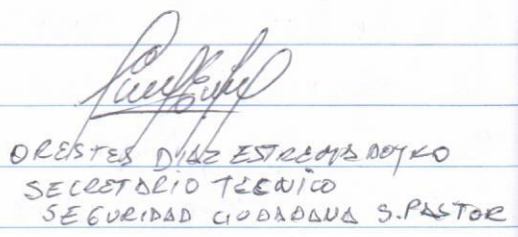 ORESTES DIAZ ESTREMADOYRO
SECRETARIO TECNICO
SEGURIDAD CIUDADANA S.PASTOR